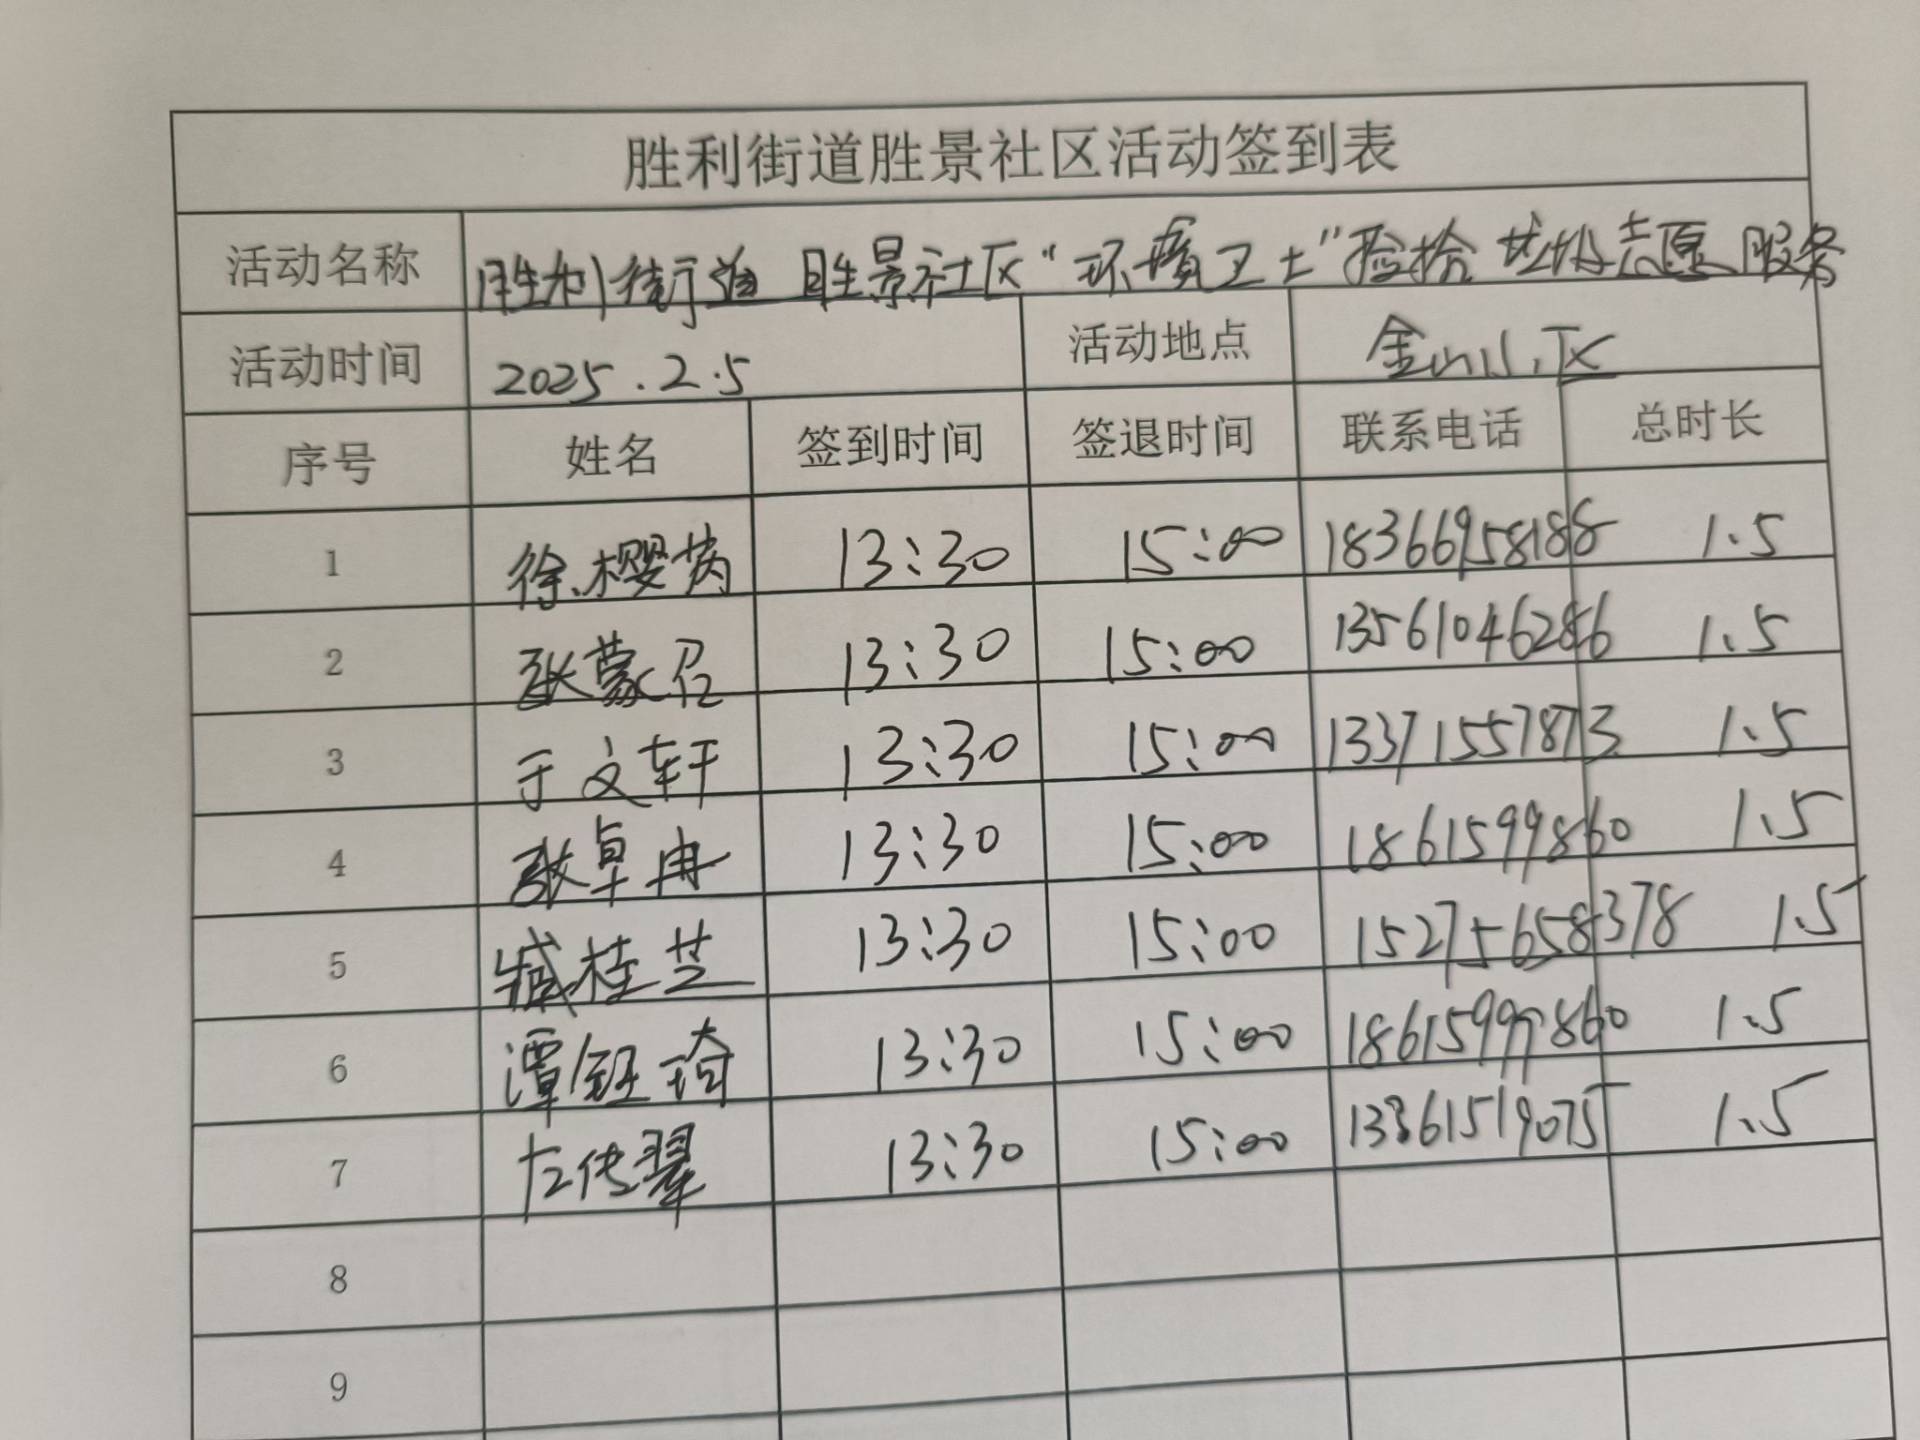 胜利街道胜景社区活动签到表
活动名称 胜利街道 胜景社区“环境卫士”捡拾垃圾志愿服务
活动时间 2025.2.5 活动地点 金山小区
序号 姓名 签到时间 签退时间 联系电话 总时长
1 徐樱芮 13:30 15:00 18366958188 1.5
2 张蒙召 13:30 15:00 13561046286 1.5
3 于文轩 13:30 15:00 13371557873 1.5
4 张卓冉 13:30 15:00 18615999860 1.5
5 臧桂芝 13:30 15:00 15275658378 1.5
6 潭钰琦 13:30 15:00 18615999860 1.5
7 左传翠 13:30 15:00 13361519075 1.5
8
9